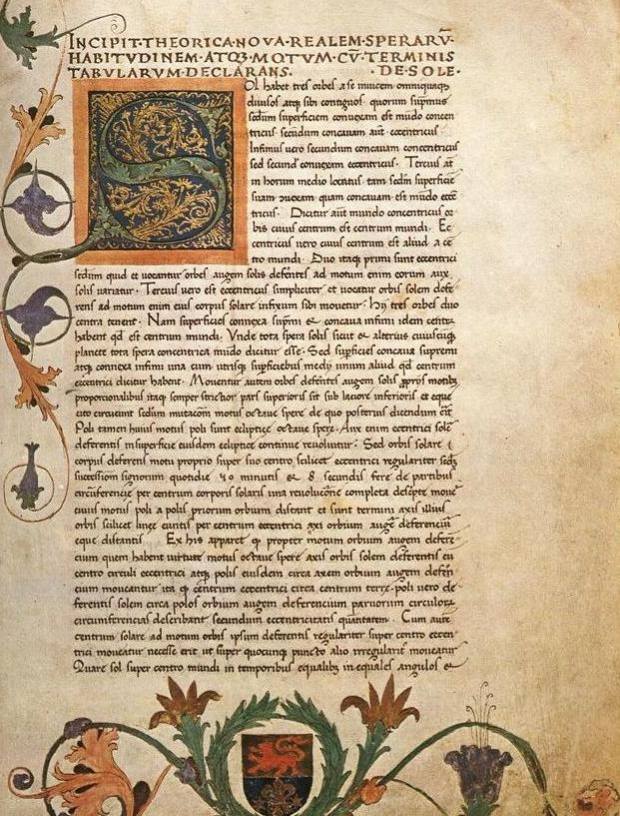 INCIPIT·THEORICA·NOVA·REALEM·SPERARṼ·
HABITVDINEM·ATQꝫ·MOTVM·CṼ·TERMINIS
TABVLARVM·DECLARANS. ·DE·SOLE·
SOl habet tres orbes a se inuicem omniquaqꝫ
diuisos atqꝫ sibi contiguos quorum supͥmus
secundum superficiem conuexam est mũdo concen
tricus· secundum concauam aũt· eccentricus
Infimus uero secundum concauam concentricus
sed secund̃ conuexam eccentricus· Tercius aũt
in horum medio locatus· tam secd̃m superficiē
suam ↄuexam quam concauam est mũdo ecce
tricus· Dicitur aũt mundo concentricus or
bis cuius centrum est centrum mundi· Ec
centricus uero cuius centrum est aliud a cē
tro mundi· Duo itaqꝫ primi sunt eccentrici
secd̃m quid et vocantur orbes augem solis defer̃tes ad motum enim eorum aux
solis uariatur· Tercius uero est eccentricus simpliciter et vocatur orbis solem defe
rens ad motum enim eius corpus solare infixum sibi mouetur· Hij tres orbes duo
centra tenent· Nam superficies connexa supͥmi & concaua infimi idem centrũ
habent qd̃ est centrum mundi· Vnde tota spera solis sicut & alterius cuiuscūqꝫ
planete tota spera concentrica mũdo dicitur esse· Sed supficies concaua supremi
atqꝫ connexa infimi una cum utrisqꝫ supficiebus medij unum aliud qd̃ centrum
eccentrici dicitur habent· Mouentur autem orbes deferētes augem solis ꝓprijs motibꝫ
proporcionalibus itaqꝫ semper strictior pars superioris sit sub laciore inferioris et eque
cito circueunt secd̃um mutacõem motus octaue spere de quo posterius dicendum erit
Poli tamen huius motus poli sunt eclipticē octaue spere· Aux enim eccentrici solē
deferentis in superficie eiusdem ecliptice continue reuoluitur· Sed orbis solare
corpus deferens motu proprio super suo centro scilicet eccentrici regulariter secd̃m
successiõm signorum quotidie 59 minutis & 8 secundis fere de partibus
circũferencie per centrum corporis solaris una reuolucõne completa descrp̃te mouet̃
cuius motus poli a polis priorum orbium distant et sunt termini axis illius
orbis scilicet linee euntis per centrum eccentrici axi orbium augē deferencium
eque distantis Ex his apparet ꝙ propter motum orbium augem defere
cium quem habent uirtute motus octaue spere axis orbis solem deferentis cū
centro circuli eccentrici atqꝫ polis eiusdem circa axem orbium augem deferē
cium moueantur ita ꝙ centrum eccentrici circa centrum terre· poli uero de
ferentis solem circa polos orbium augem deferencium paruorum circulorū
circumferencias describant secundum eccentricitatis quãtitatem· Cum autē
centrum solare ad motum orbis ipsum deferentis regulariter super centro eccen
trici moueatur necesse erit ut super quocunqꝫ puncto alio irregularit̃ moueatur
Quare sol super centro mundi in temporibus equalibꝫ inequales angulos &